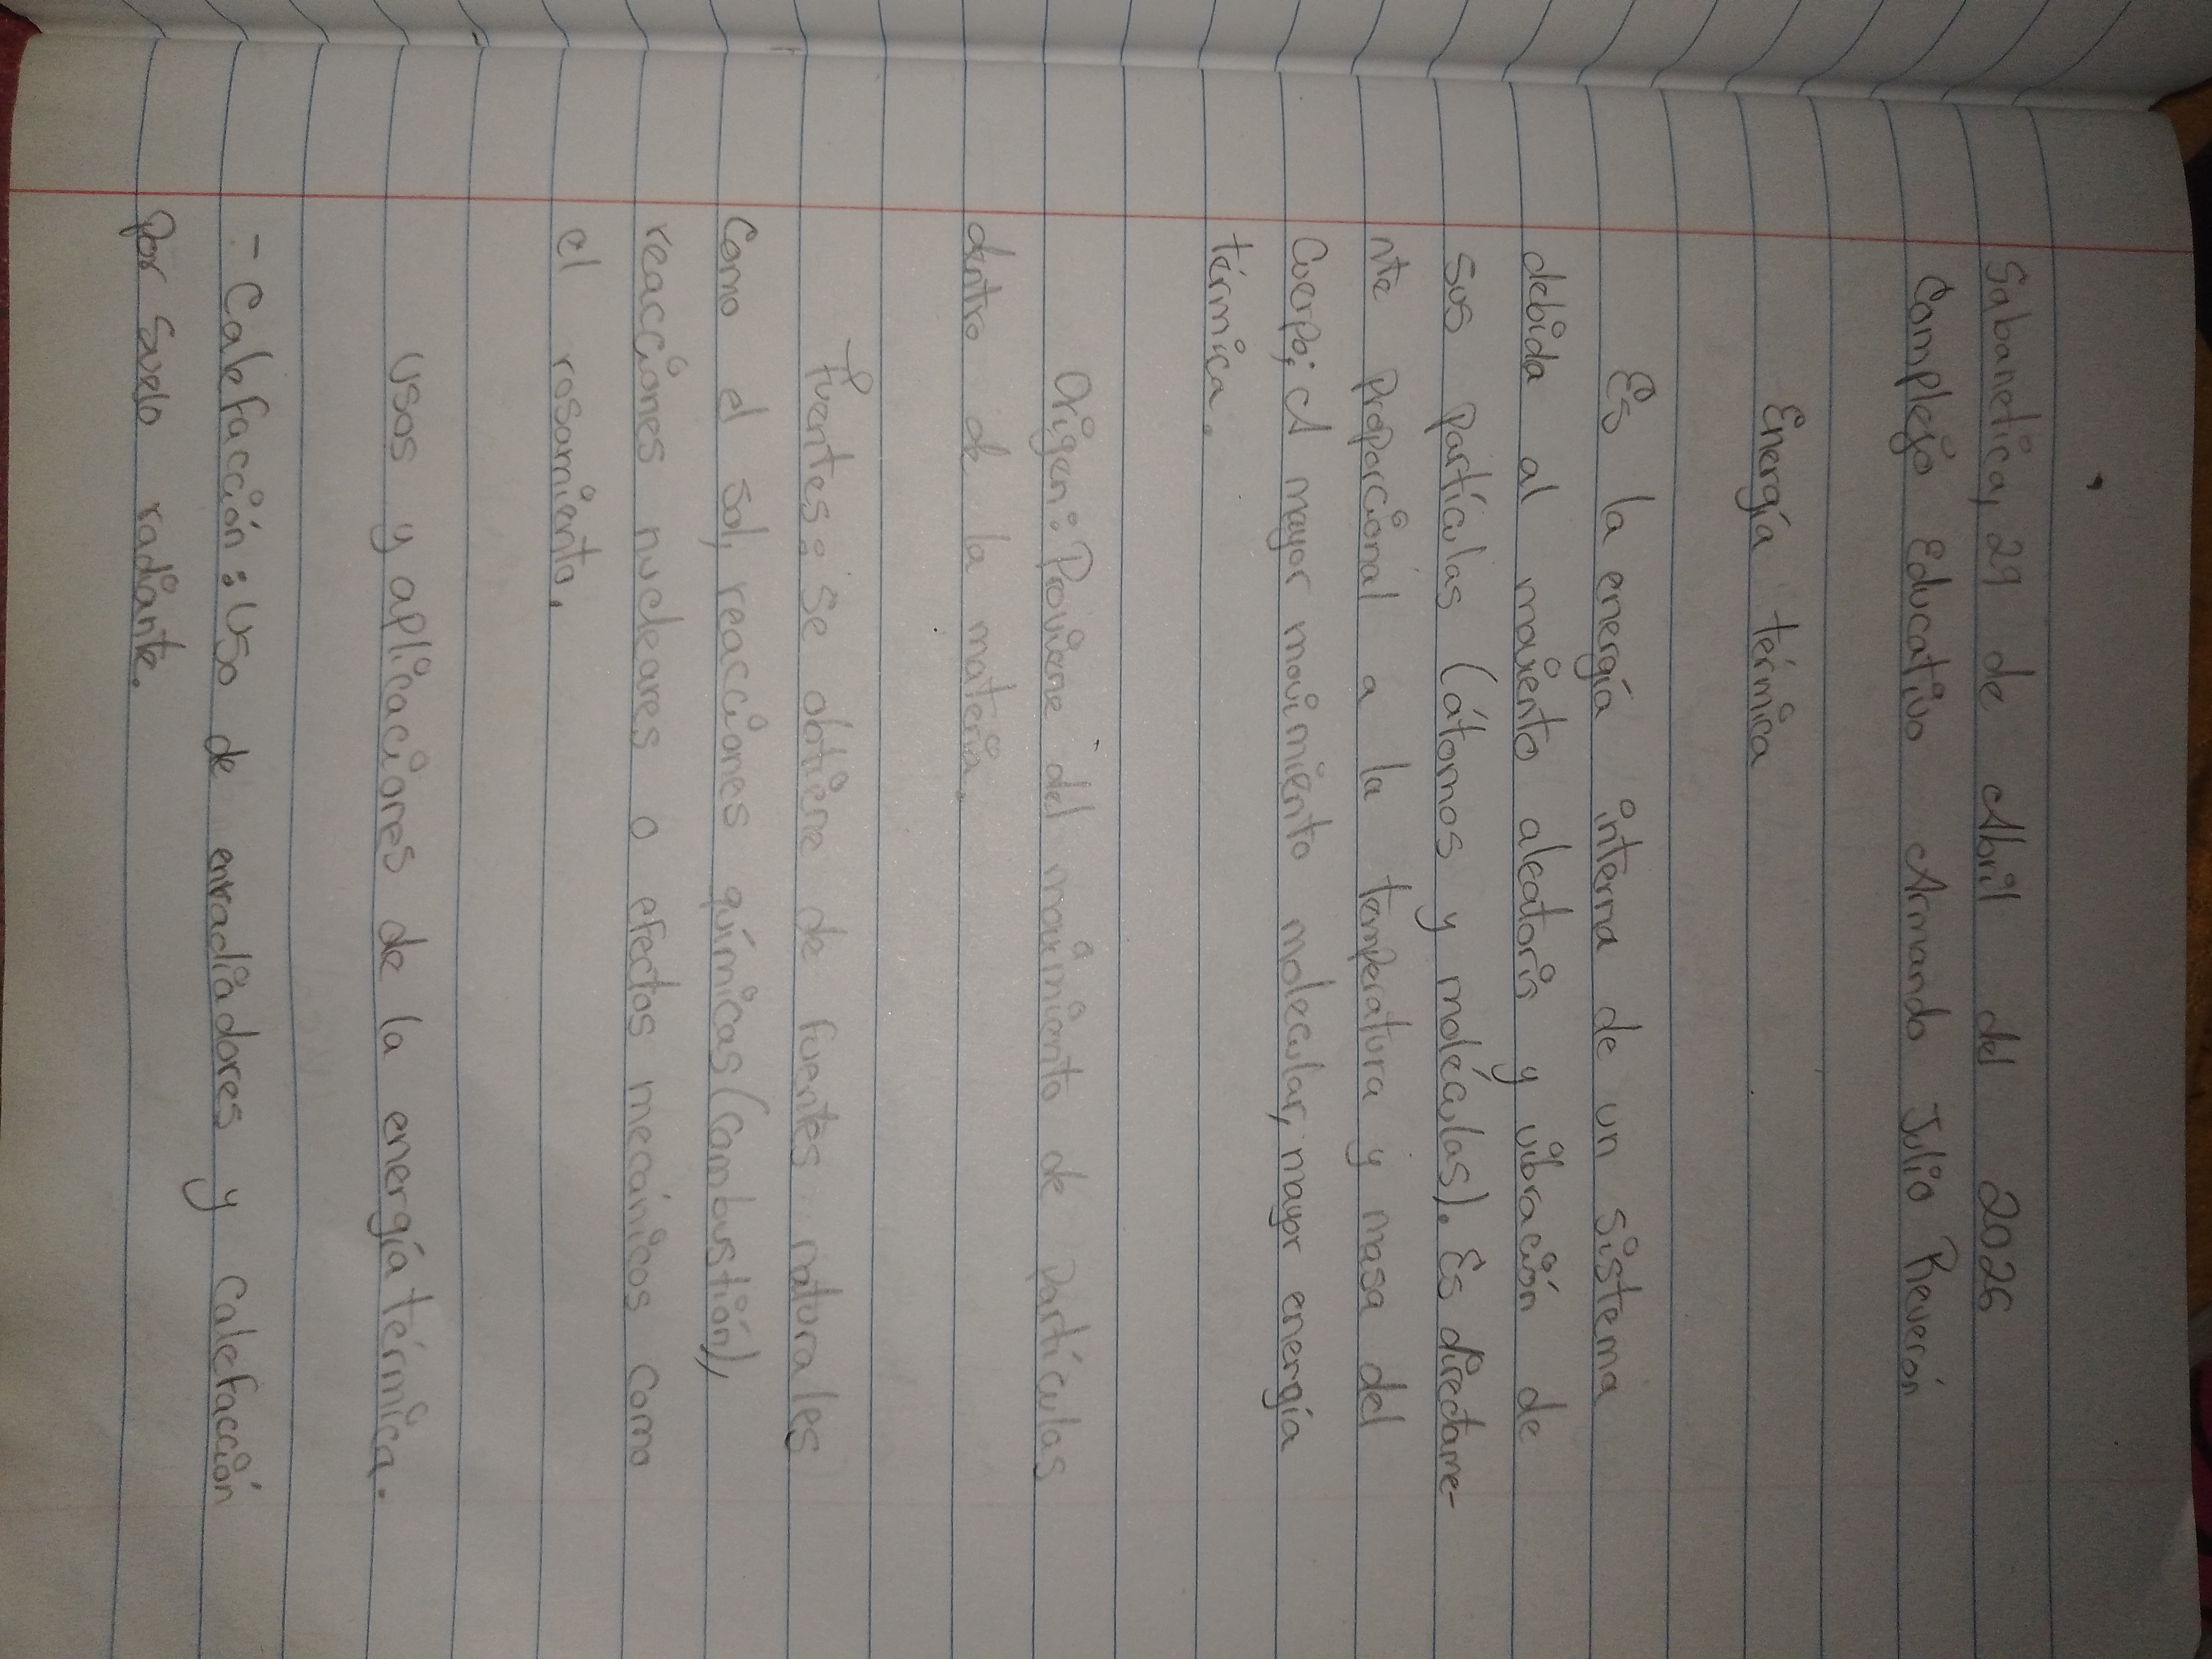 Sabanetica, 29 de Abril del 2026
Complejo Educativo Armando Julio Reverón
Energía térmica
Es la energía interna de un sistema
debida al moviento aleatorio y vibración de
sus partículas (átomos y moléculas). Es directame-
nte proporcional a la temperatura y masa del
Cuerpo; A mayor movimiento molecular, mayor energía
térmica.
Origen: Proviene del movimiento de partículas
dentro de la materia.
Fuentes: Se obtiene de fuentes naturales
como el sol, reacciones químicas (Combustión),
reacciones nucleares o efectos mecánicos como
el rosamiento.
Usos y aplicaciones de la energía térmica.
- Calefacción: Uso de enradiadores y Calefacción
Por Suelo radiante.